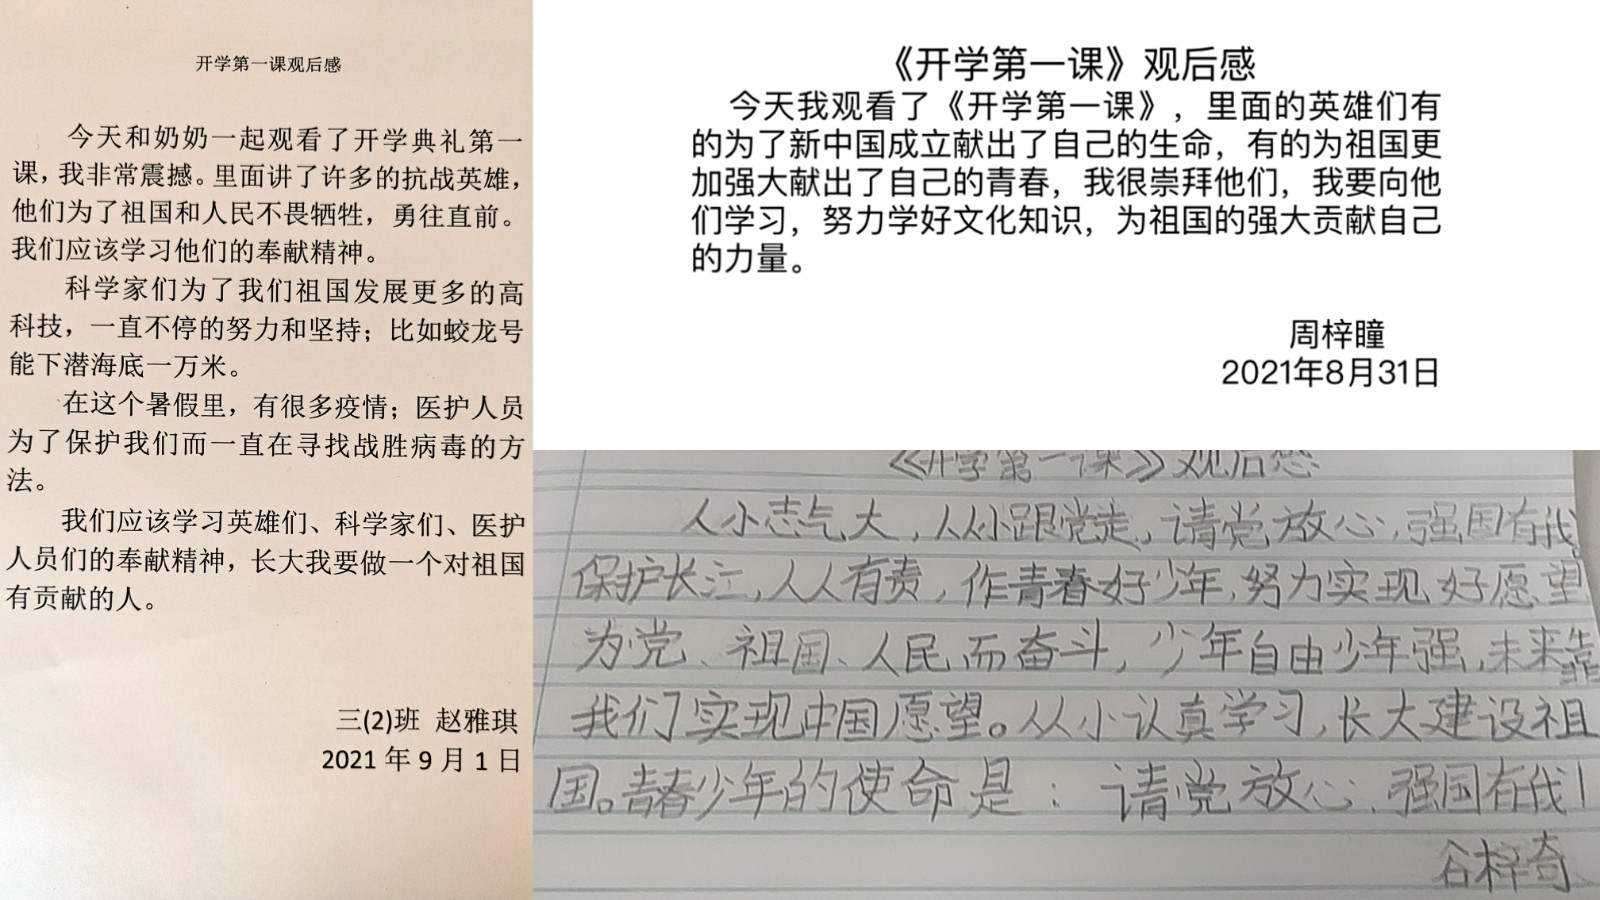 开学第一课观后感
今天和奶奶一起观看了开学典礼第一
课，我非常震撼。里面讲了许多的抗战英雄，
他们为了祖国和人民不畏牺牲，勇往直前。
我们应该学习他们的奉献精神。
科学家们为了我们祖国发展更多的高
科技，一直不停的努力和坚持；比如蛟龙号
能下潜海底一万米。
在这个暑假里，有很多疫情；医护人员
为了保护我们而一直在寻找战胜病毒的方
法。
我们应该学习英雄们、科学家们、医护
人员们的奉献精神，长大我要做一个对祖国
有贡献的人。
三(2)班 赵雅琪
2021年9月1日
《开学第一课》观后感
今天我观看了《开学第一课》，里面的英雄们有
的为了新中国成立献出了自己的生命，有的为祖国更
加强大献出了自己的青春，我很崇拜他们，我要向他
们学习，努力学好文化知识，为祖国的强大贡献自己
的力量。
周梓瞳
2021年8月31日
《开学第一课》观后感
人小志气大，从小跟党走，请党放心，强国有我，
保护长江，人人有责，作青春好少年，努力实现好愿望
为党、祖国、人民而奋斗，少年自由少年强，未来靠
我们实现中国愿望。从小认真学习，长大建设祖
国。青春少年的使命是：请党放心、强国有我！
谷梓奇